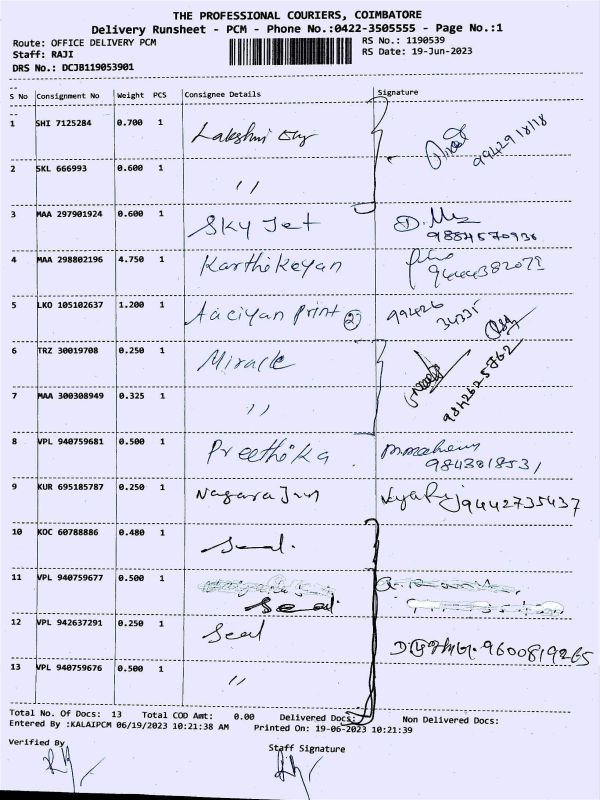 THE PROFESSIONAL COURIERS, COIMBATORE
Delivery Runsheet - PCM - Phone No.:0422-3505555 - Page No.:1
Route: OFFICE DELIVERY PCM RS No.: 1190539
Staff: RAJI RS Date: 19-Jun-2023
DRS No.: DCJB119053901
S No Consignment No Weight PCS Consignee Details Signature
1 SHI 7125284 0.700 1 Lakshmi 9942918118
2 SKL 666993 0.600 1 ,,
3 MAA 297901924 0.600 1 Sky Jet 9884570936
4 MAA 298802196 4.750 1 Karthikeyan 9444382071
5 LKO 105102637 1.200 1 Aaciyan Print (2) 99426
34335
6 TRZ 30019708 0.250 1 Miracle 9842625762
7 MAA 300308949 0.325 1 ,,
8 VPL 940759681 0.500 1 Preethika
9843818531
9 KUR 695185787 0.250 1 Nagarajun 9442735437
10 KOC 60788886 0.480 1 Seal.
11 VPL 940759677 0.500 1
Seal.
12 VPL 942637291 0.250 1 Seal 9600819265
13 VPL 940759676 0.500 1 ,,
Total No. Of Docs: 13 Total COD Amt: 0.00 Delivered Docs: Non Delivered Docs:
Entered By :KALAIPCM 06/19/2023 10:21:38 AM Printed On: 19-06-2023 10:21:39
Verified By Staff Signature